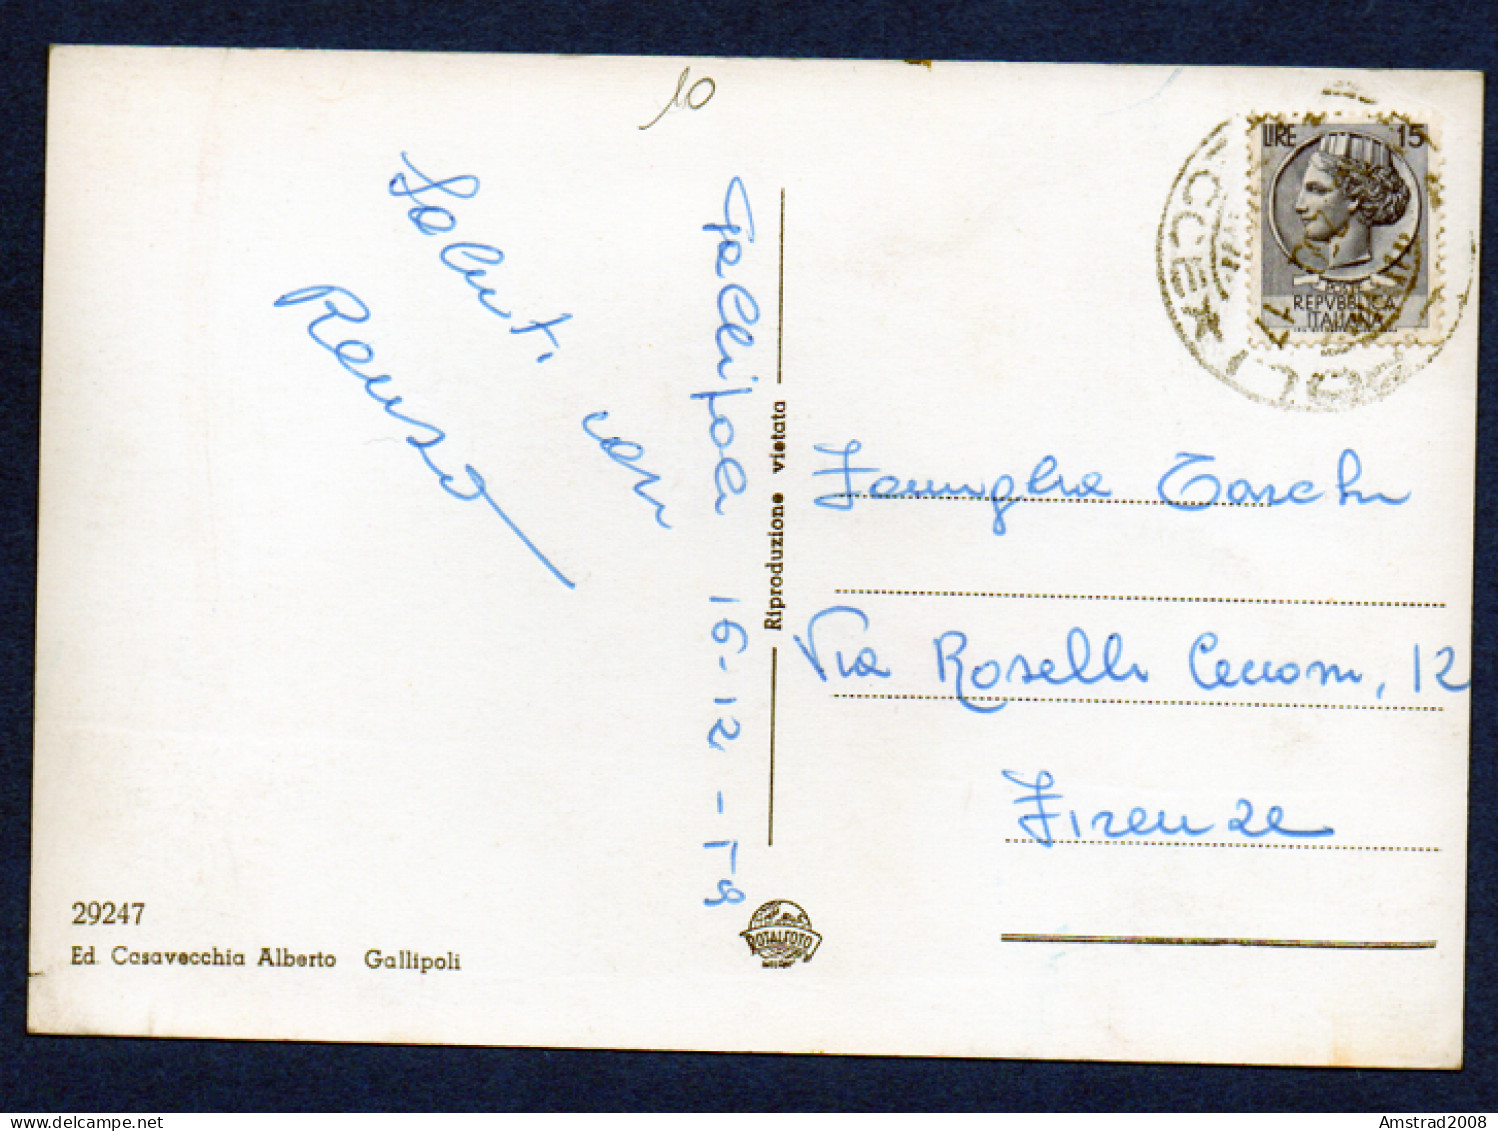 10
Saluti cari
Renso
Gallipoli 16-12-58
Riproduzione vietata
LIRE 15
POSTE
REPVBBLICA
ITALIANA
Famiglia Taschi
Via Roselli Cecconi, 12
Firenze
29247
Ed. Casavecchia Alberto Gallipoli
ROTALFOTO
MILANO
Amstrad2008